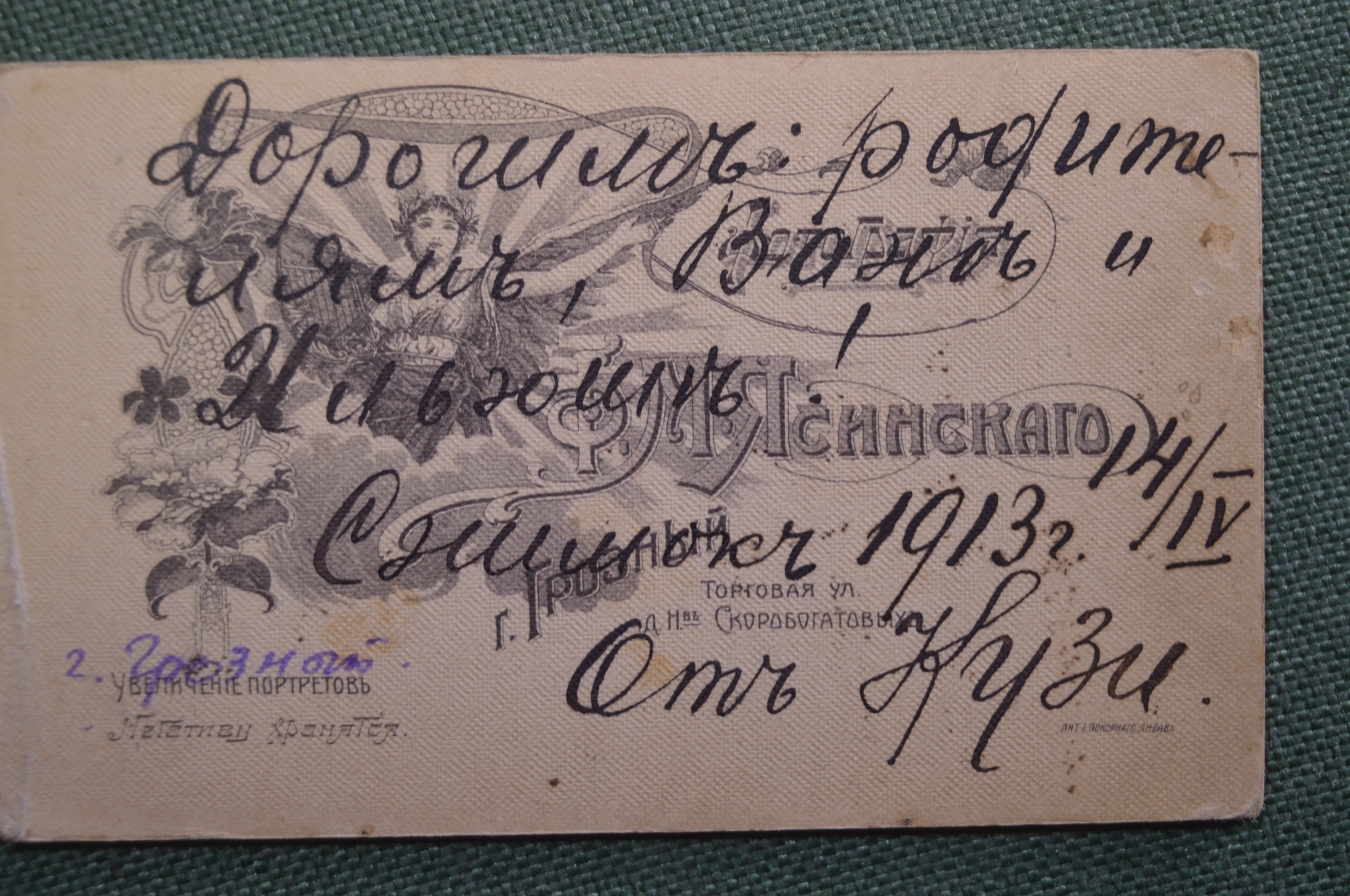 Дорогимъ родите-
лямъ, Ванѣ и
Ильюшѣ!
Фотографія
Ф. М. Ясинскаго
14/IV
1913 г.
г. Грозный
Торговая ул.
д. Н-въ Скоробогатовыхъ
Отъ Кузи.
г. Грозный.
Увеличеніе портретовъ
Негативы хранятся.